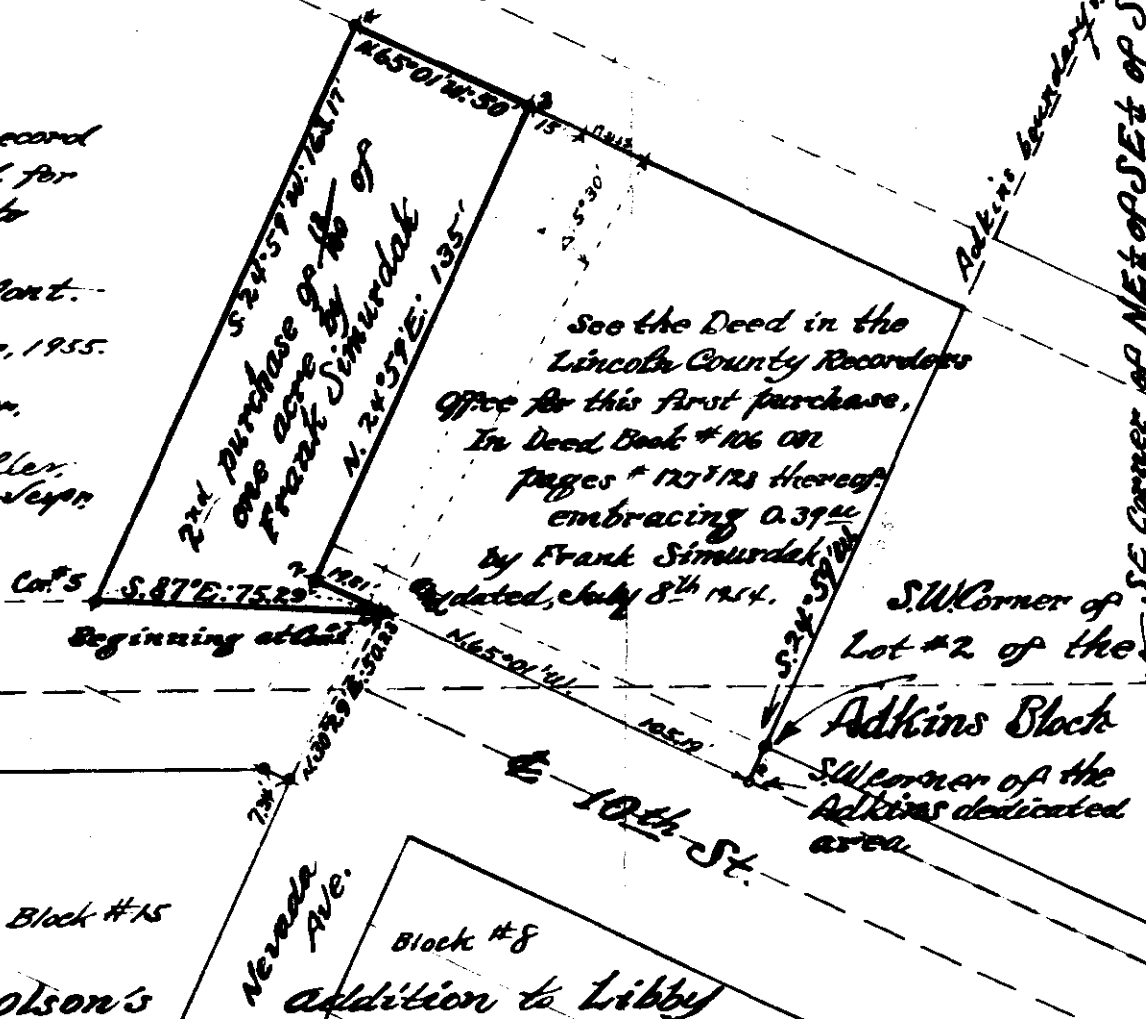 N.65°01'W: 50'
3
15
S. 24°59'W: 163.17'
2nd purchase of 18/100 of
one acre by
Frank Simurdak
N. 24°59'E: 135'
5°30'
ecord
for
to
ont.
, 1955.
Adkins boundary
SE Corner of NE¼ of SE¼ of S
See the Deed in the
Lincoln County Recorders
Office for this first purchase,
In Deed Book #106 on
pages #127 & 128 thereof:
embracing 0.39 ac
by Frank Simurdak
dated, July 8th 1954.
Cor.#5
S.87°E: 75.29'
2
19.81'
Beginning at Cor.#1
N.65°01'W.
105.19'
S. 24°59'W
S.W. Corner of
Lot #2 of the
Adkins Block
S.W. corner of the
Adkins dedicated
area
7.34'
℄ 10th St.
Nevada
Ave.
Block #15
Block #8
olson's addition to Libby